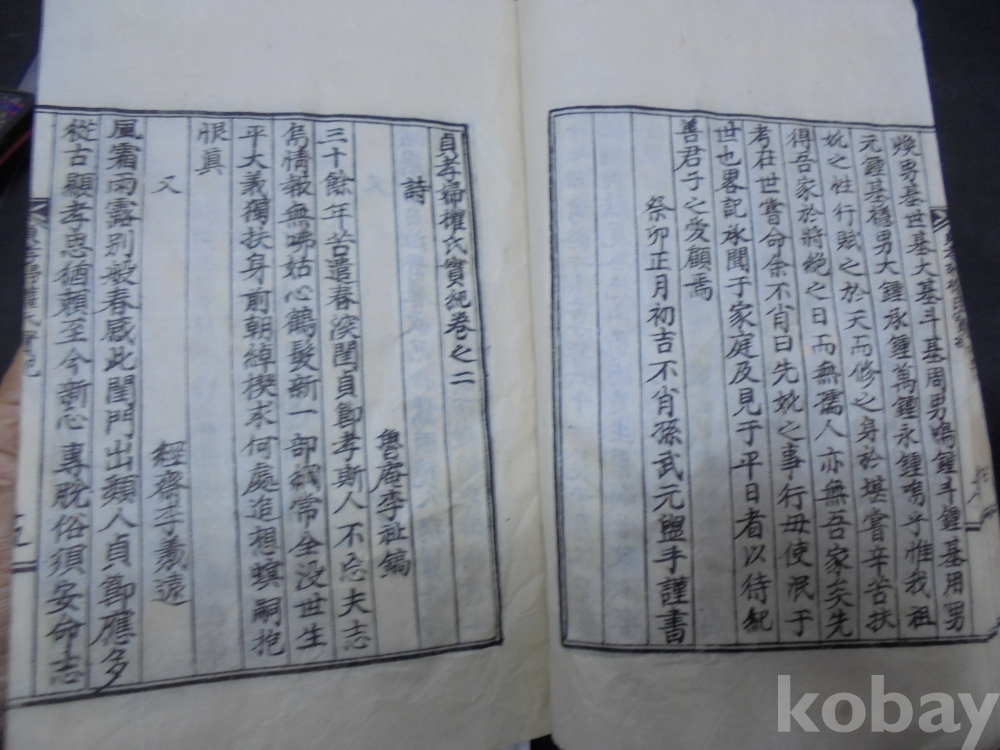 煥男基世基大基斗基周男鳴鍾斗鍾基用男
元鍾基穆男大鍾承鍾萬鍾永鍾嗚乎惟我祖
妣之性行賦之於天而修之身於堪嘗辛苦扶
得吾家於將絶之日而無孺人亦無吾家矣先
考在世嘗命余不肖曰先妣之事行毋使泯于
世也畧記承聞于家庭及見于平日者以待紀
善君子之愛顧焉
癸卯正月初吉不肖孫武元盥手謹書
貞孝婦權氏實紀卷之二
詩
魯庵李祉鎬
三十餘年苦遣春深閨貞節孝斯人不忘夫志
烏情報無怫姑心鶴髮新一部綱常全没世生
平大義獨扶身前朝綽楔求何處追想螟嗣抱
恨眞
又
經齋李羲遠
風霜雨露別般春感此閨門出類人貞節應多
從古顯孝思猶賴至今新心專脫俗須安命志
kobay